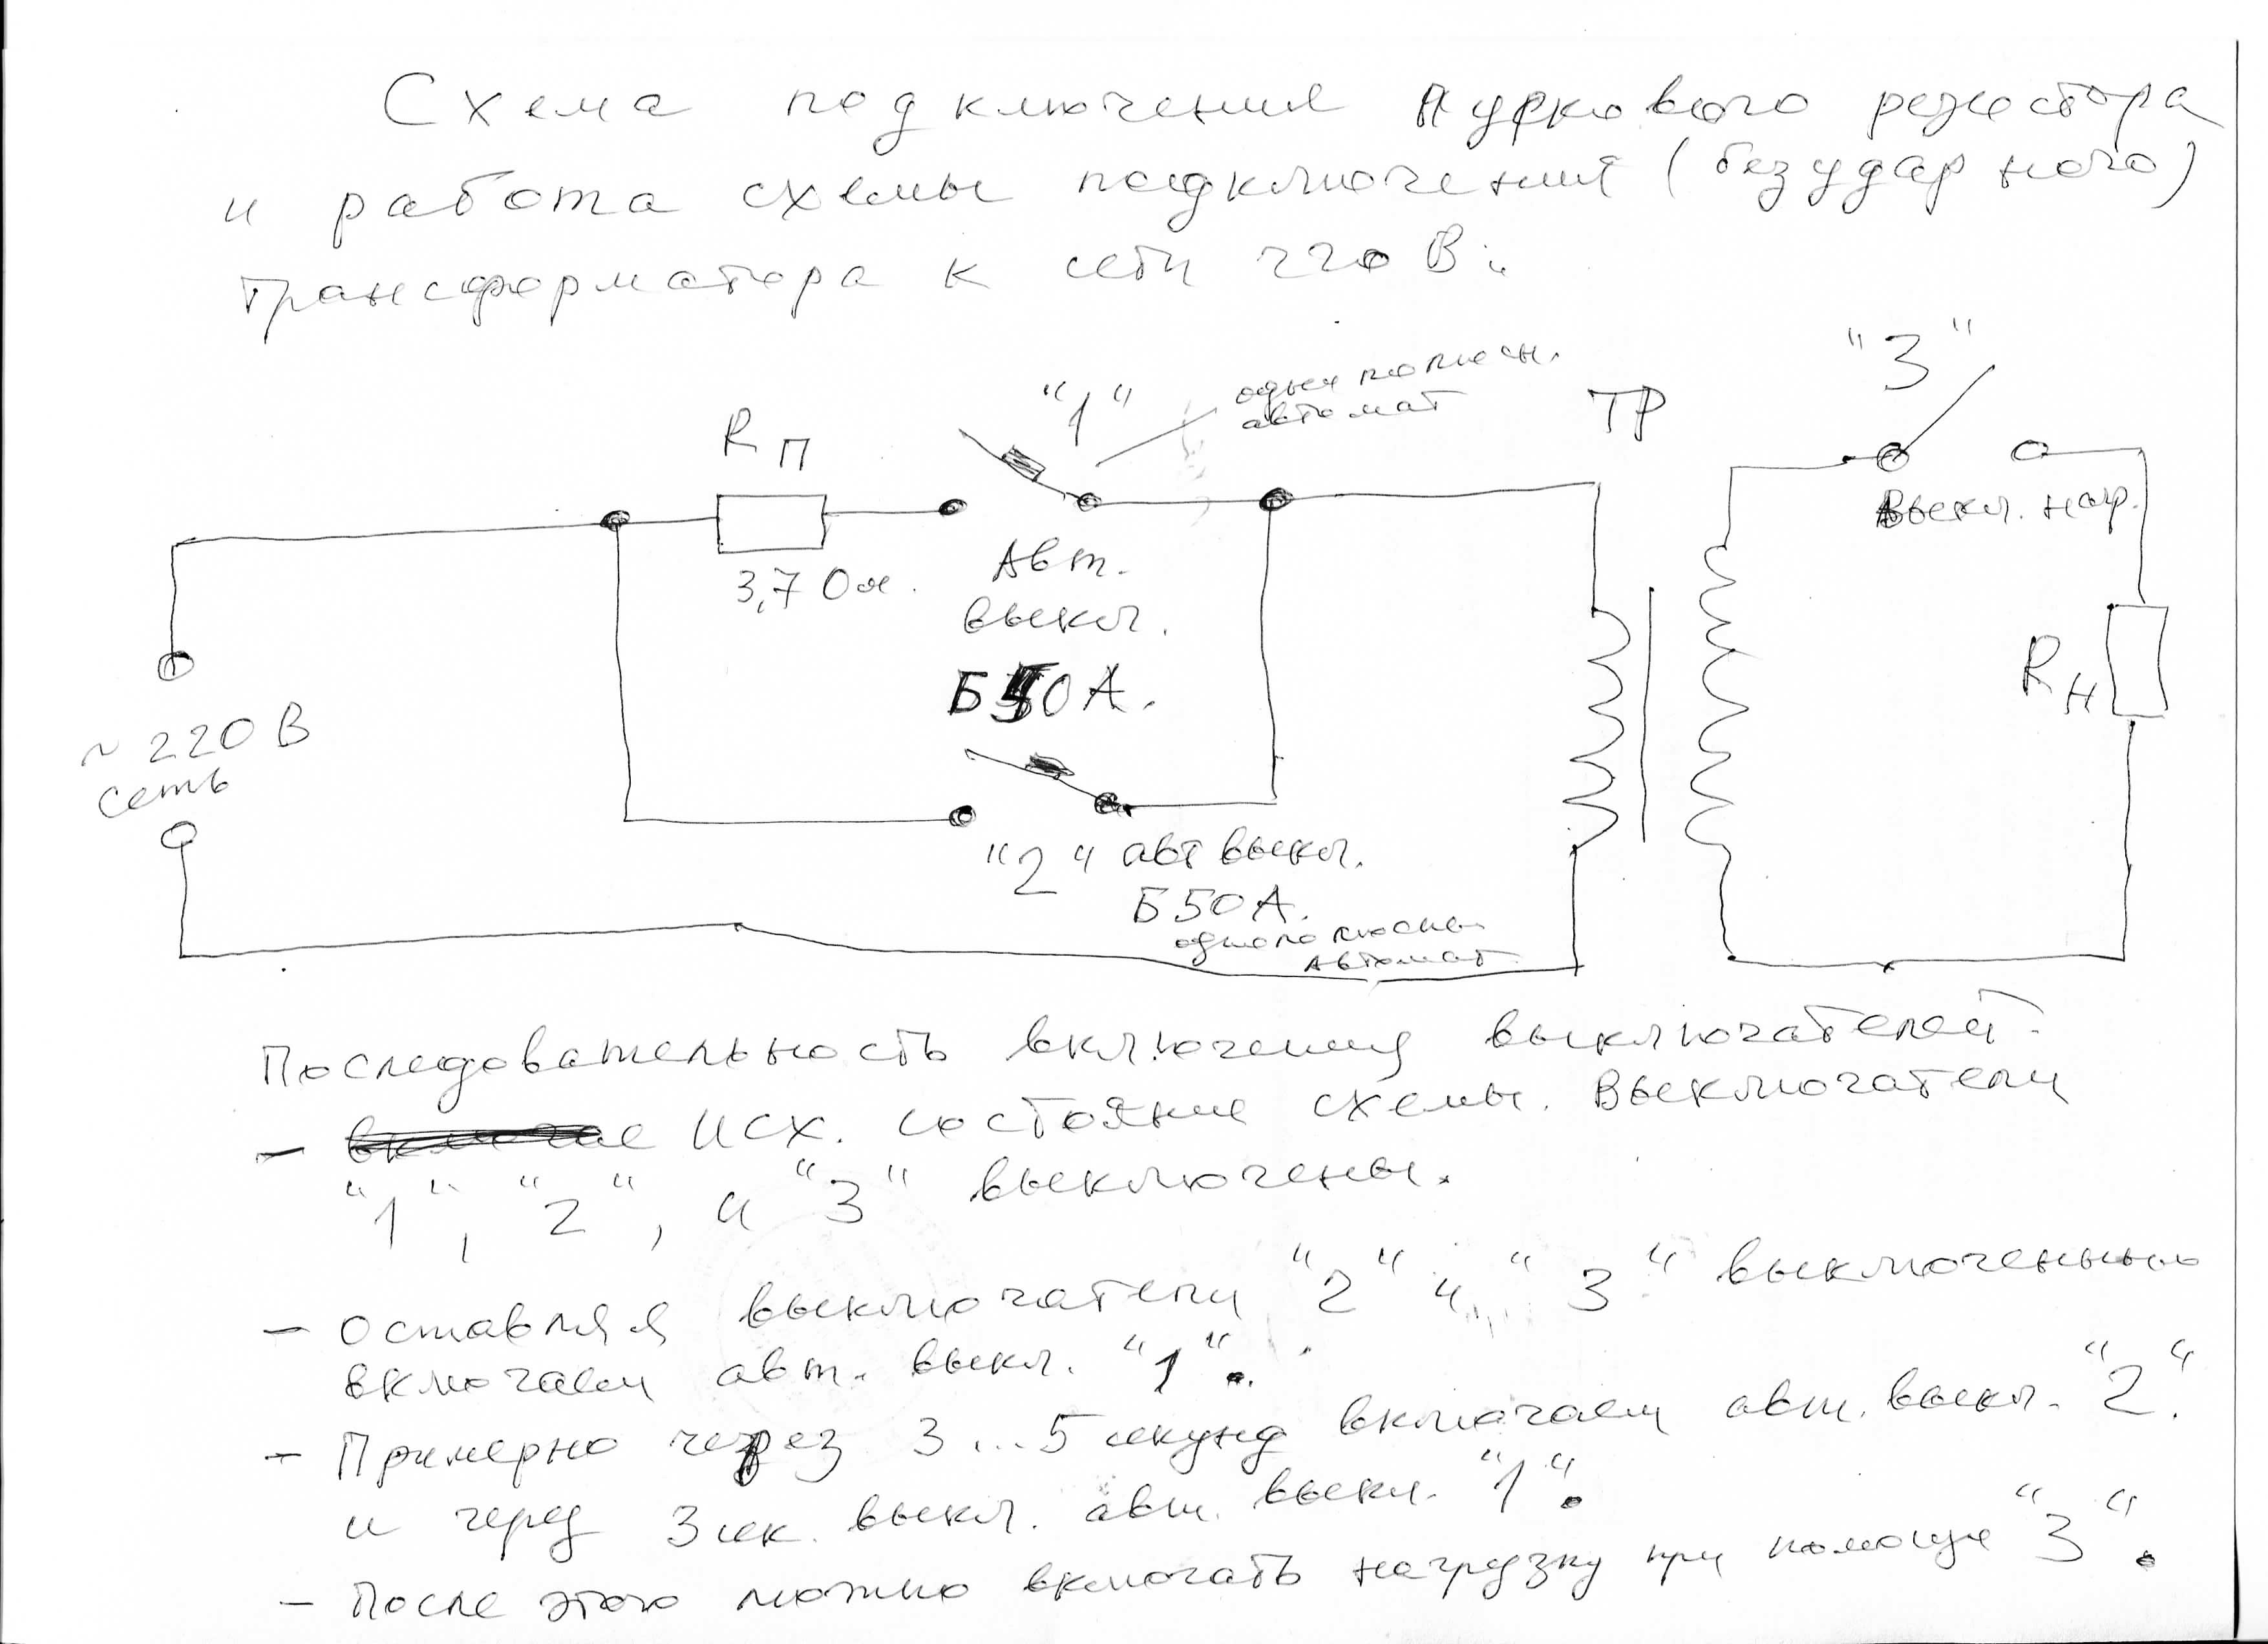 Схема подключения пускового резистора
и работа схемы подключения (безударного)
трансформатора к сети 220 В:
"3"
"1"
однополюсн.
автомат
ТР
Rп
Выкл. нагр.
3,7 Ом.
Авт.
выкл.
Б50А.
Rн
~220 В
сеть
"2" авт выкл.
Б50А.
однополюсн.
автомат
Последовательность включения выключателей:
- Исх. состояние схемы. Выключатели
"1", "2", и "3" выключены.
- Оставляя выключатели "2" и "3" выключенными
включаем авт. выкл. "1".
- Примерно через 3...5 секунд включаем авт. выкл. "2".
и через 3 сек. выкл. авт. выкл. "1".
- После этого можно включать нагрузку при помощи "3".